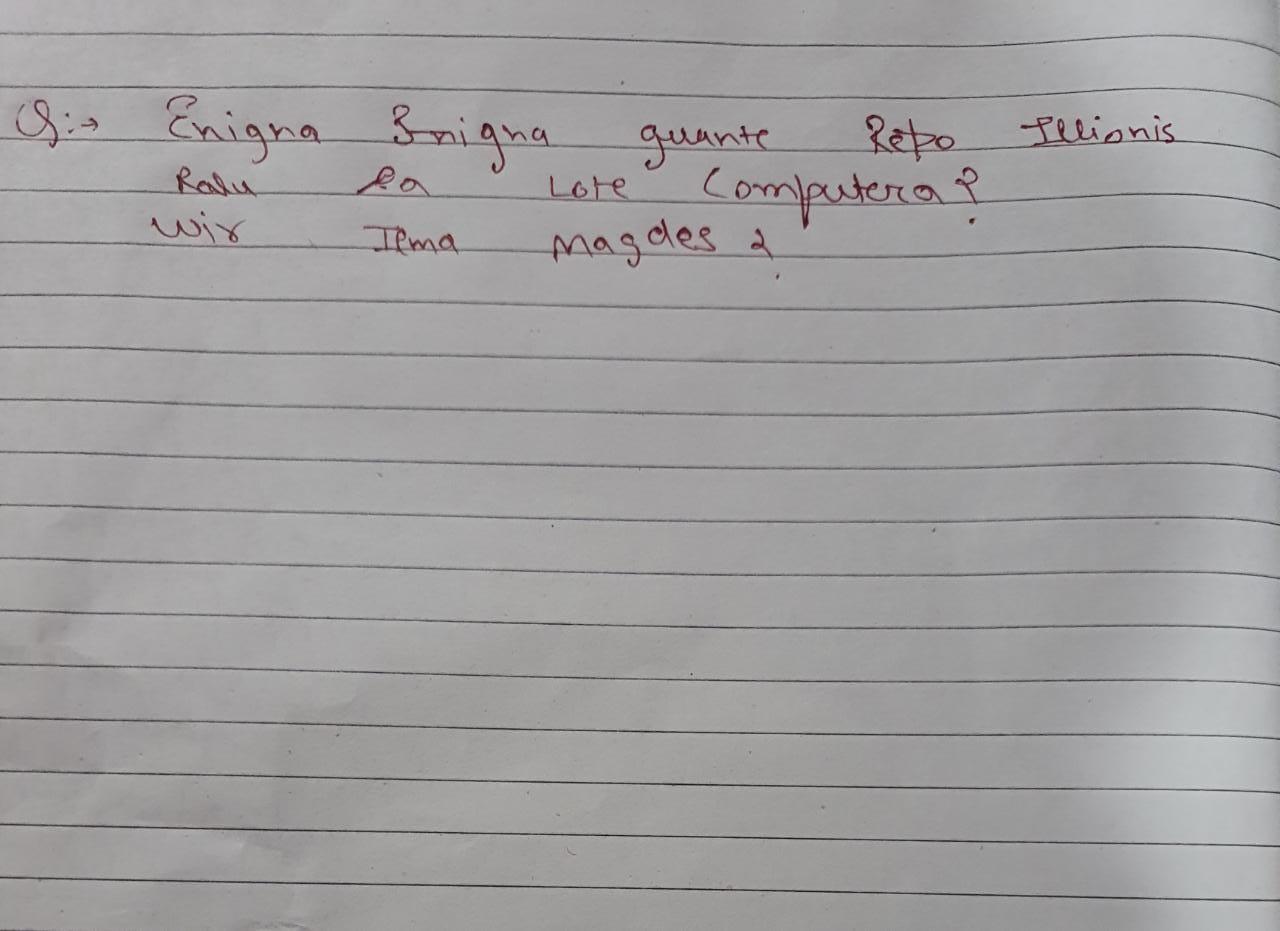 Q:→ Enigna Snigna quante Repo Illionis
Ralu la Lote Computera?
Wir Ilma Magdes ?